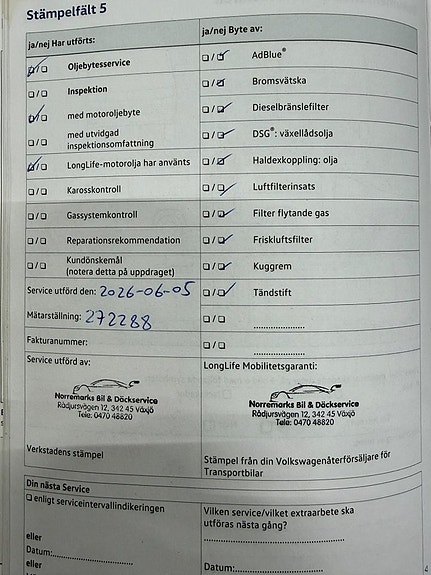 Stämpelfält 5
ja/nej Har utförts:
ja/nej Byte av:
Oljebytesservice
AdBlue®
Inspektion
Bromsvätska
med motoroljebyte
Dieselbränslefilter
med utvidgad
inspektionsomfattning
DSG®: växellådsolja
LongLife-motorolja har använts
Haldexkoppling: olja
Karosskontroll
Luftfilterinsats
Gassystemkontroll
Filter flytande gas
Reparationsrekommendation
Friskluftsfilter
Kundönskemål
(notera detta på uppdraget)
Kuggrem
Service utförd den: 2026-06-05
Tändstift
Mätarställning: 272288
Fakturanummer:
Service utförd av:
LongLife Mobilitetsgaranti:
Norremarks Bil & Däckservice
Rådjursvägen 12, 342 45 Växjö
Tele: 0470 48820
Norremarks Bil & Däckservice
Rådjursvägen 12, 342 45 Växjö
Tele: 0470 48820
Verkstadens stämpel
Stämpel från din Volkswagenåterförsäljare för
Transportbilar
Din nästa Service
enligt serviceintervallindikeringen
Vilken service/vilket extraarbete ska
utföras nästa gång?
eller
Datum:
eller
Datum: